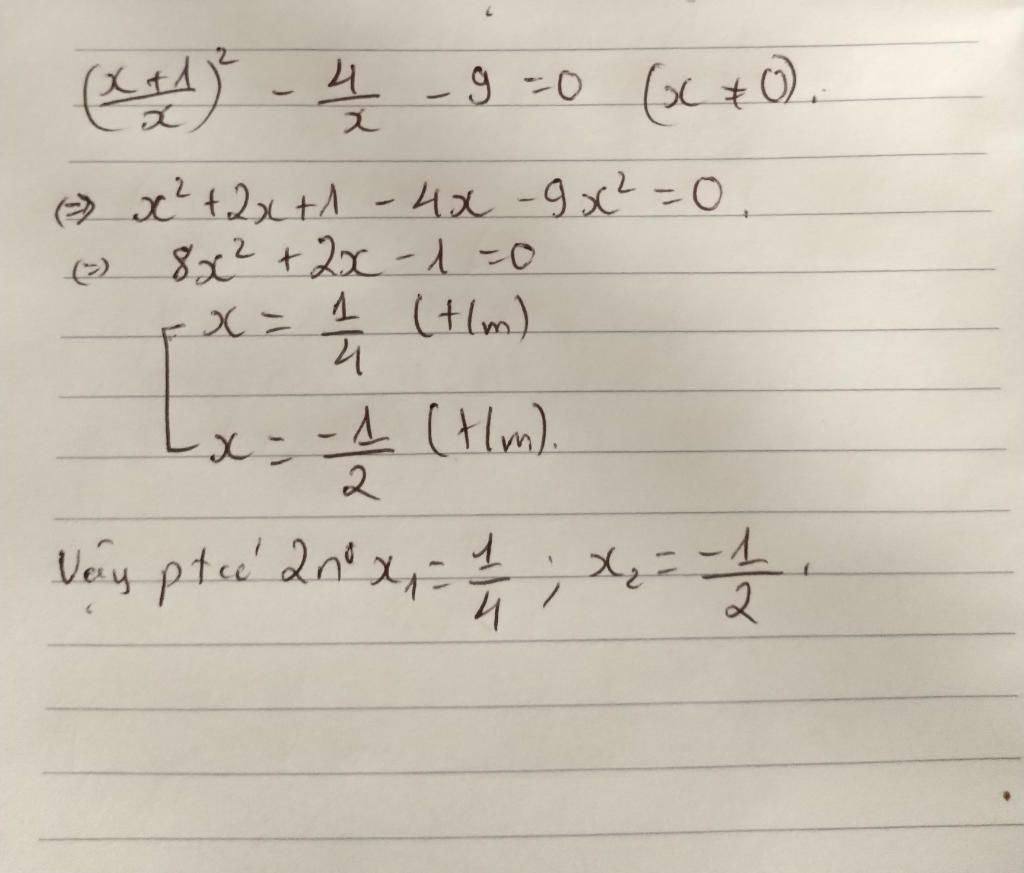 (x+1/x)² - 4/x - 9 = 0 (x ≠ 0).
(=> x² + 2x + 1 - 4x - 9x² = 0.
(=) 8x² + 2x - 1 = 0
x = 1/4 (t/m)
x = -1/2 (t/m).
Vậy pt có 2 n⁰ x₁ = 1/4 ; x₂ = -1/2 .